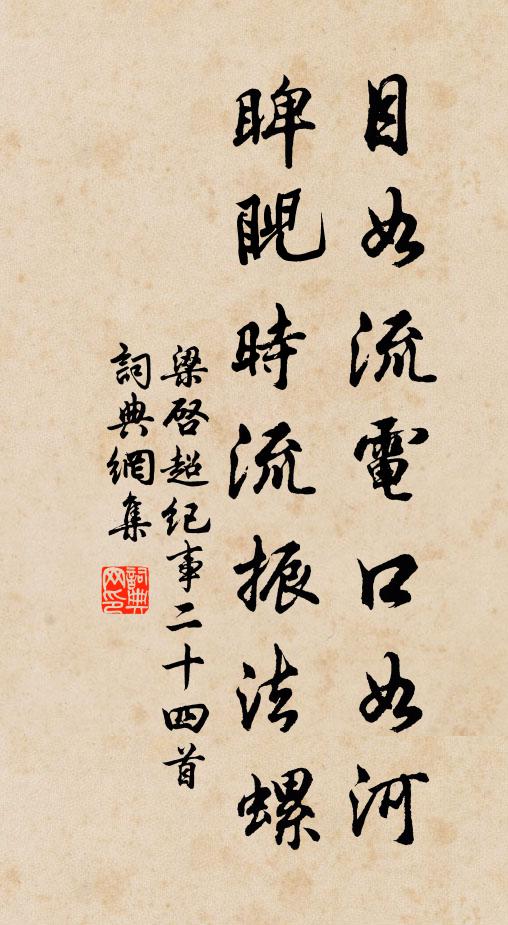 目如流電口如河
睥睨時流振法螺
梁啓超纪事二十四首
詞典網集
詞典网印